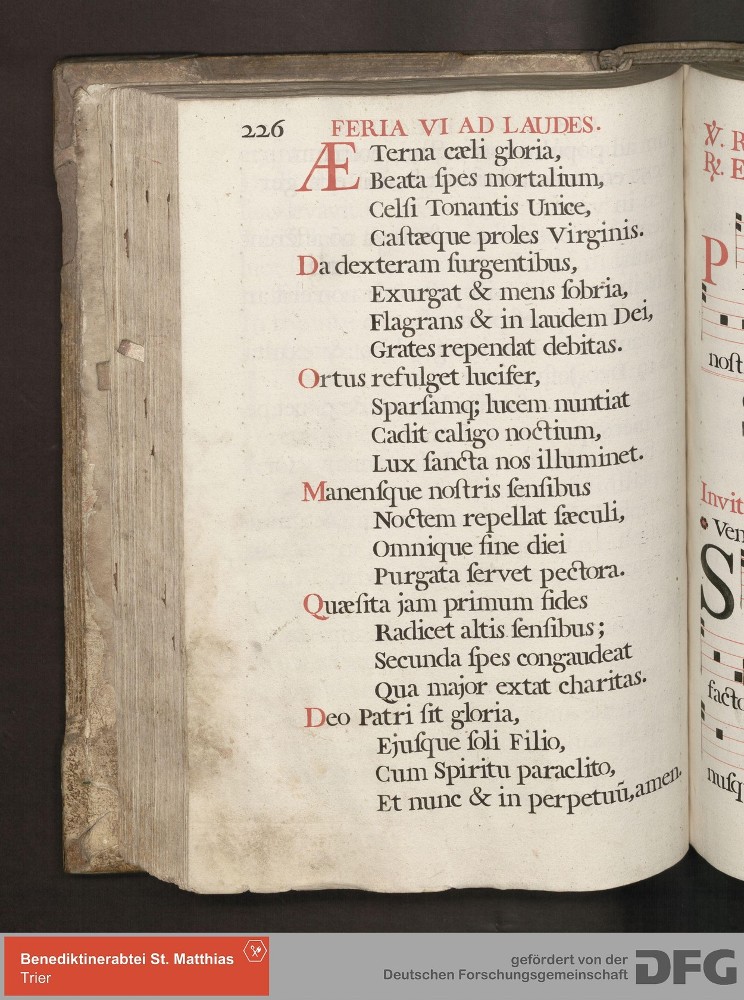 226 FERIA VI AD LAUDES.
ÆTerna cæli gloria,
Beata ſpes mortalium,
Celſi Tonantis Unice,
Caſtæque proles Virginis.
Da dexteram ſurgentibus,
Exurgat & mens ſobria,
Flagrans & in laudem Dei,
Grates rependat debitas.
Ortus refulget lucifer,
Sparſamq; lucem nuntiat
Cadit caligo noctium,
Lux ſancta nos illuminet.
Manenſque noſtris ſenſibus
Noctem repellat ſæculi,
Omnique fine diei
Purgata ſervet pectora.
Quæſita jam primum fides
Radicet altis ſenſibus;
Secunda ſpes congaudeat
Qua major extat charitas.
Deo Patri ſit gloria,
Ejuſque ſoli Filio,
Cum Spiritu paraclito,
Et nunc & in perpetuũ, amen.
℣. R
℟. E
P
noſt
Invit
Ven
S
facto
nuſq
Benediktinerabtei St. Matthias
Trier
gefördert von der
Deutschen Forschungsgemeinschaft
DFG